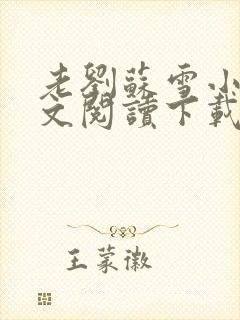 老劉蘇雪小
文閱讀下載
王蒙徽